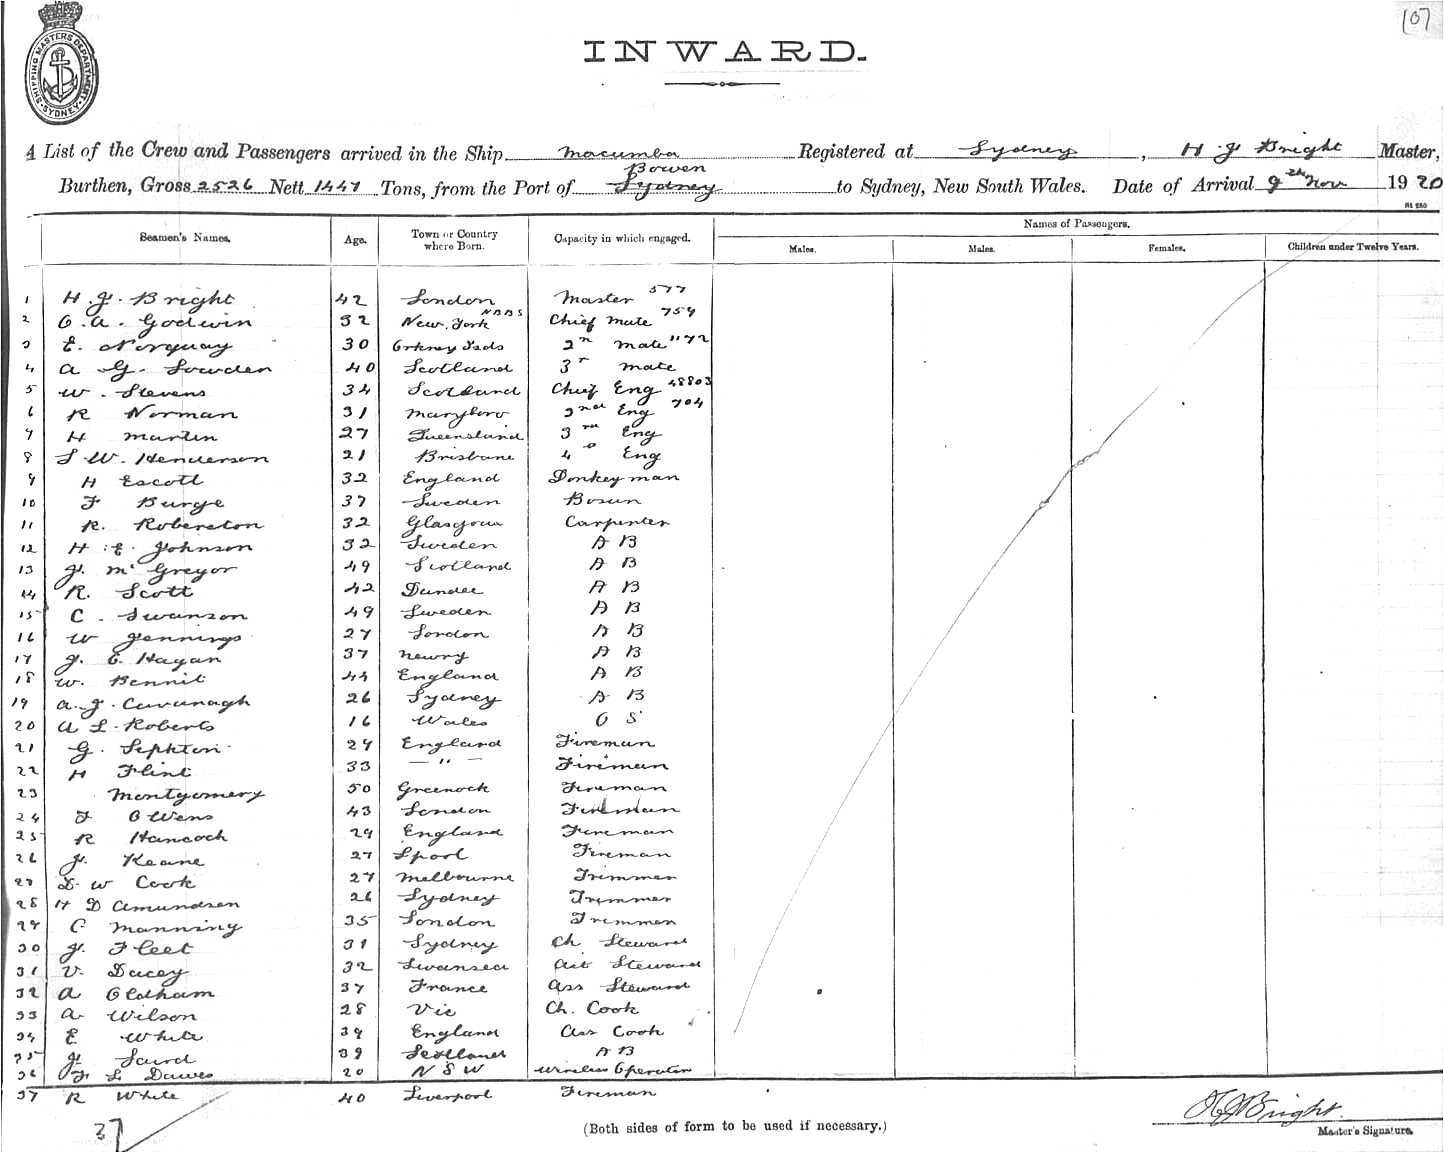 107
SHIPPING MASTERS DEPARTMENT. SYDNEY
INWARD.
A List of the Crew and Passengers arrived in the Ship Macumba Registered at Sydney, H J Bright Master,
Bowen
Burthen, Gross 2526 Nett 1447 Tons, from the Port of Sydney to Sydney, New South Wales. Date of Arrival 9th Nov 1920
Names of Passengers.
Seamen's Names. Age. Town or Country where Born. Capacity in which engaged. Males. Males. Females. Children under Twelve Years.
1 H. J. Bright 42 London Master 577
2 O. A. Godwin 32 New York Chief Mate 759
3 E. Norquay 30 Orkney Isds 2n Mate 1172
4 A G. Lowden 40 Scotland 3r Mate
5 W. Stevens 34 Scotland Chief Eng 48803
6 R Norman 31 Maryboro 2nd Eng 704
7 H Martin 27 Queensland 3rd Eng
8 S W. Henderson 21 Brisbane 4 Eng
9 H Escott 32 England Donkeyman
10 F Burge 37 Sweden Bosun
11 R. Roberston 32 Glasgow Carpenter
12 H. E. Johnson 32 Sweden A B
13 J. McGregor 49 Scotland A B
14 R. Scott 42 Dundee A B
15 C. Swanson 49 Sweden A B
16 W Jennings 27 London A B
17 J. O. Hagan 37 Newry A B
18 W. Bennit 44 England A B
19 A. J. Cavanagh 26 Sydney A B
20 A L. Roberts 16 Wales O S
21 G. Sephton 29 England Fireman
22 H Flint 33 — " — Fireman
23 Montgomery 50 Greenock Fireman
24 F Owens 43 London Fireman
25 R Hancock 29 England Fireman
26 J. Keane 27 Lpool Fireman
27 D. W Cook 27 Melbourne Trimmer
28 H D Amundsen 26 Sydney Trimmer
29 C Manning 35 London Trimmer
30 J. Fleet 31 Sydney Ch Steward
31 V. Dacey 32 Swansea Steward
32 A Oldham 37 France Ass Steward
33 A. Wilson 28 Vic Ch. Cook
34 E White 39 England Ass Cook
35 J. Laird 39 Scotland A B
36 F L Dawes 20 N S W Wireless Operator
37 R White 40 Liverpool Fireman
37
H J Bright.
(Both sides of form to be used if necessary.)
Master's Signature.